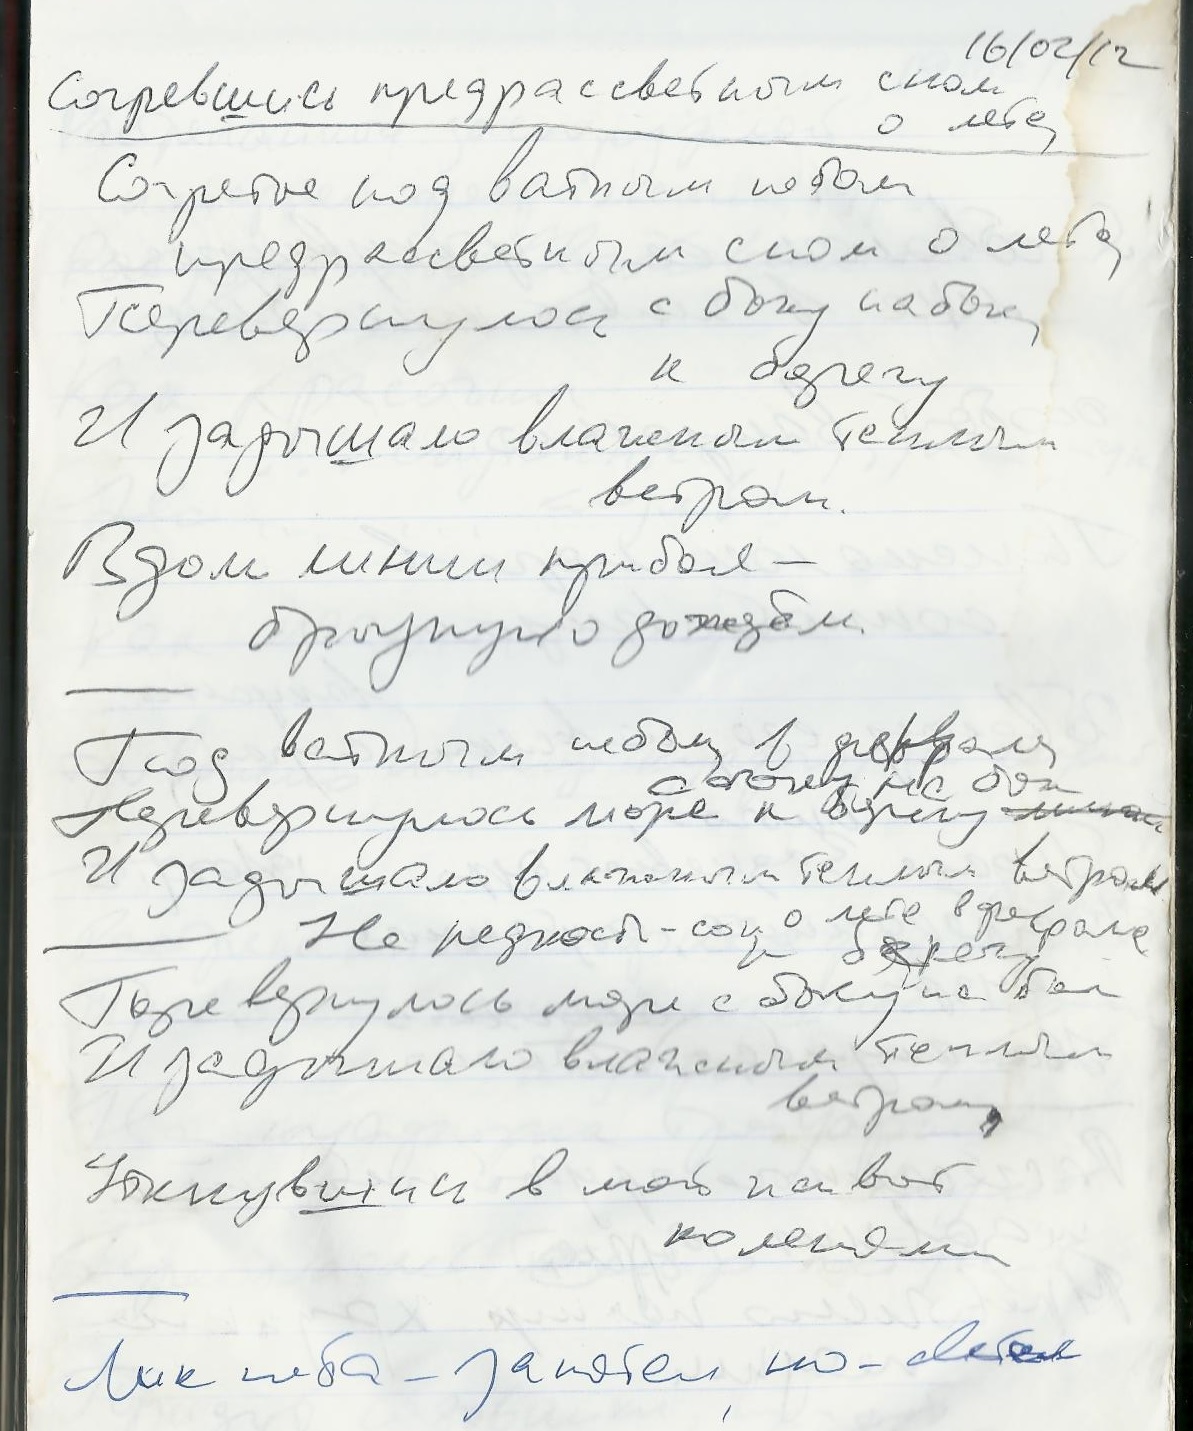 16/02/12
Согревшись предрассветным сном
о лете,
Согретое под ватным небом
предрассветным сном о лете,
Перевернулось с боку на бок,
к берегу
И задышало влажным теплым
ветром.
Вдоль линии прибоя –
брызнуло дождём.
Под ватным небом, в феврале,
с боку на бок
Перевернулось море к берегу
И задышало влажным теплым ветром
Не редкость – сон о лете в феврале
к берегу
Перевернулось море с боку на бок
И задышало влажным теплым
ветром,
Уткнувшись в мой живот
коленями
Лик неба – запятая, но –